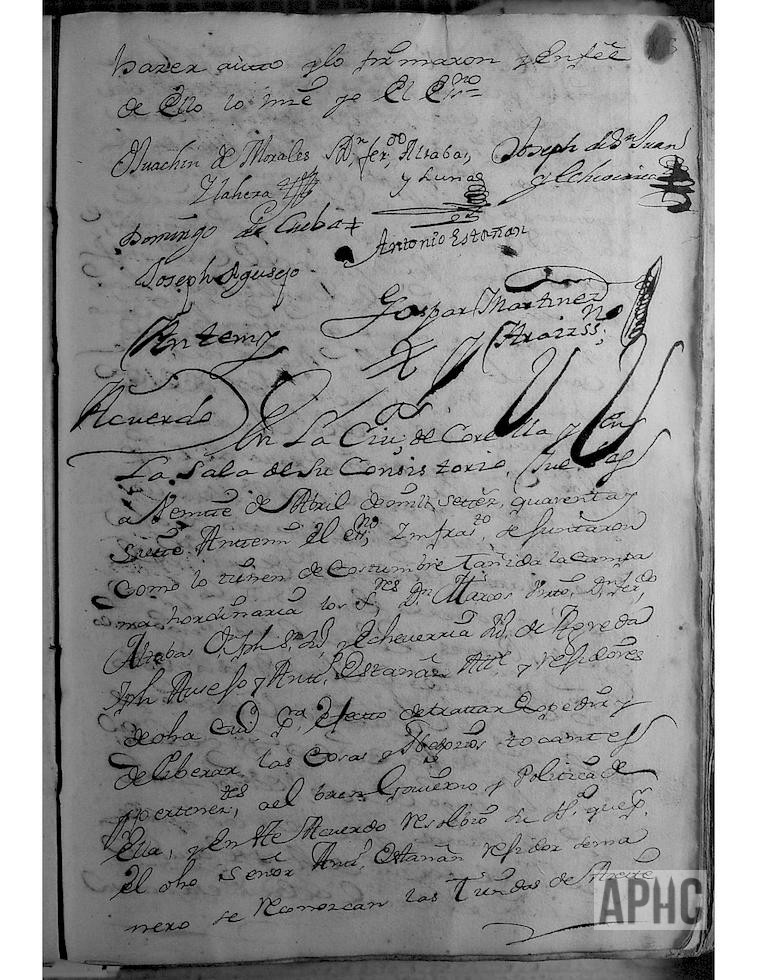 hazer aucto y lo firmaron y En fee
de Ello lo firme yo El Esno
Juachin de Morales Dn ferdo Alrabas Joseph de Sn Juan
y lahera y Lunas y Echeverria
Domingo de Cueba
Antonio Estañan
Joseph Aguseso
Gaspar Martinez
Antemy y Araiz ssno
Acuerdo En La Ciud de Corella y En
La Sala de Su Consistorio, Juebes
a Veinte de Abril de mill setezs quarenta y
siette Antemi El esno Infrasto se Juntaron
Como lo tienen de Costumbre tañida la campa
na hordinaria los Sres Dn Marcos Dn ferdo
Alrabas Jph Sn Jun y Echeverria de Agreda
Jph Auseso y Antto Estañan Alle y rexidores
de dha Ciud Pa Efecto de trattar Expedir y
deliberar las Cosas y Negozios tocantes
y pertenectes a el buen Govierno y Politica de
Ella, y En Este Acuerdo resolbio de qe por
El dho señor Antto Estañan rexidor
nero se reconozcan las Tiendas de Azeite
APHC